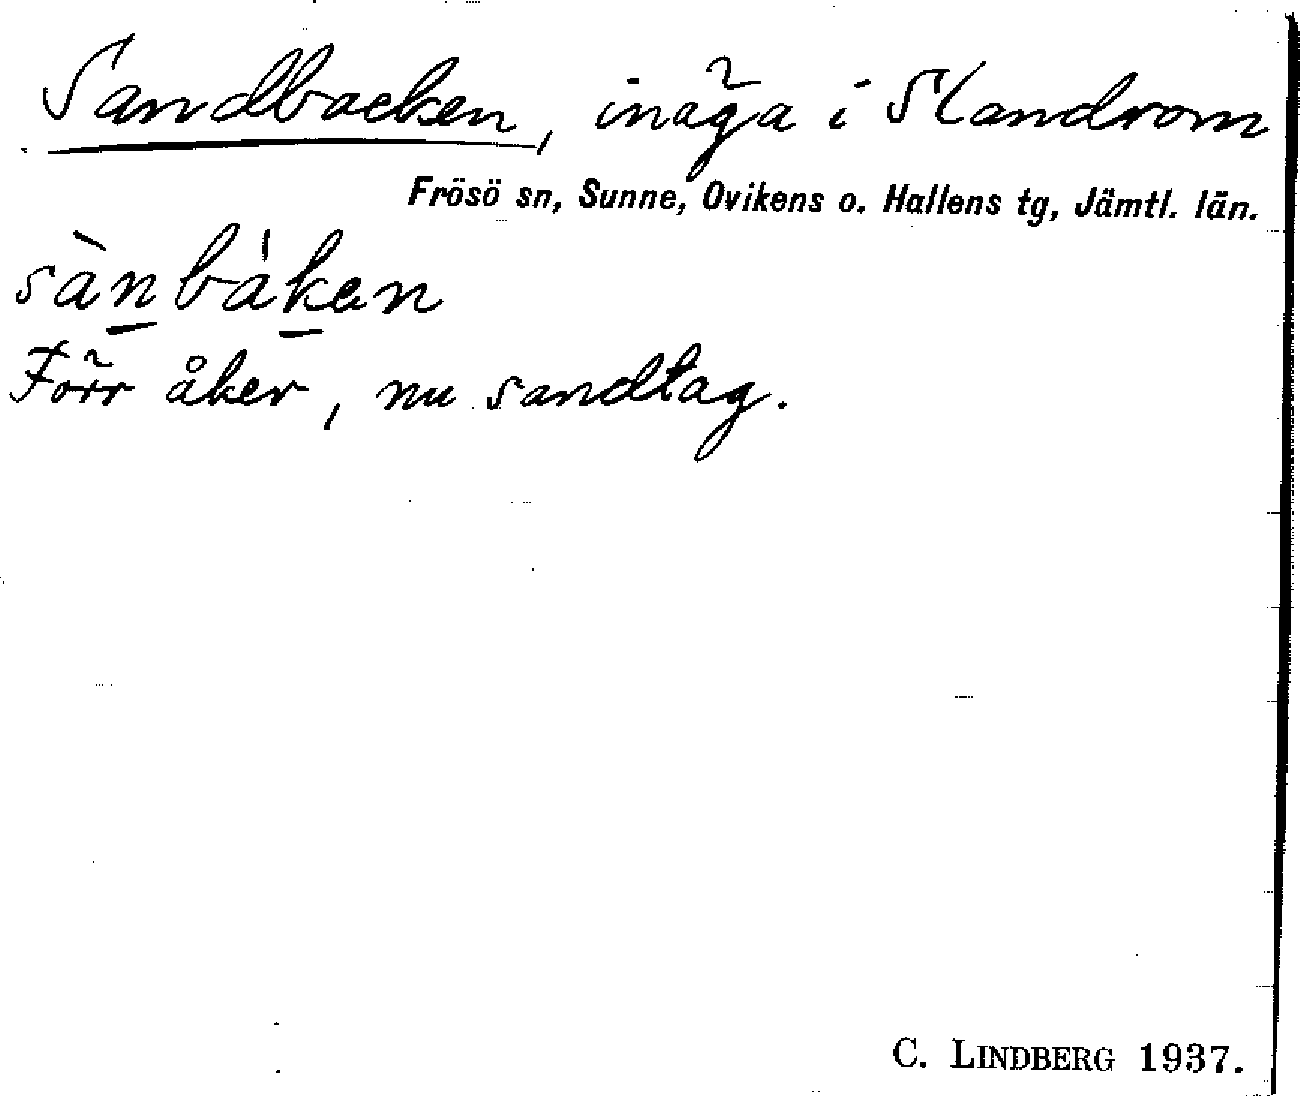 Sandbacken, inäga i Slandrom
Frösö sn, Sunne, Ovikens o. Hallens tg, Jämtl. län.
sànbáken
Förr åker, nu sandtag.
C. LINDBERG 1937.